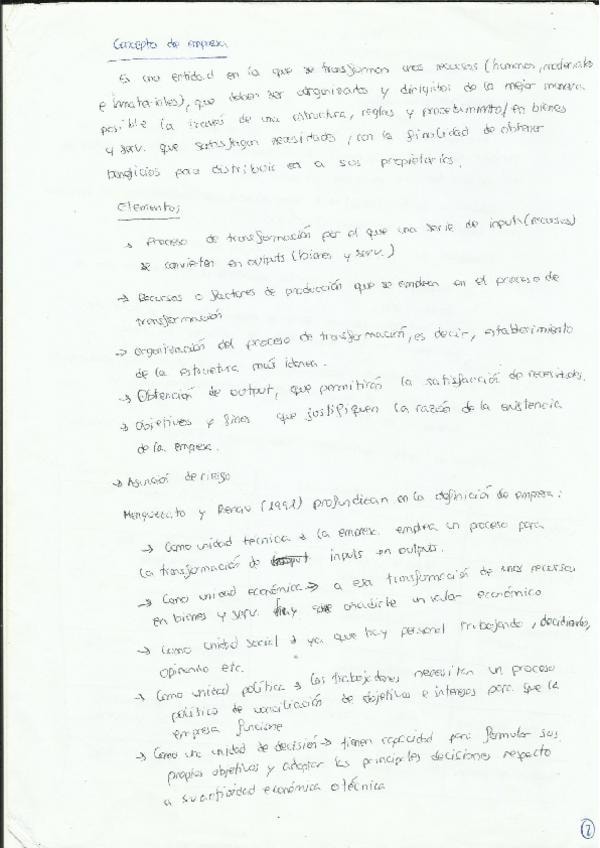 Concepto de empresa
Es una entidad en la que se transforman unos recursos (humanos, materiales
e inmateriales), que deben ser organizados y dirigidos de la mejor manera
posible (a través de una estructura, reglas y procedimiento) en bienes
y serv. que satisfagan necesidades, con la finalidad de obtener
beneficios para distribuir a sus propietarios.
Elementos
→ Proceso de transformación por el que una serie de inputs (recursos)
se convierten en outputs (bienes y serv.)
→ Recursos o factores de producción que se emplean en el proceso de
transformación
→ Organización del proceso de transformación, es decir, establecimiento
de la estructura más idonea.
→ Obtención de output, que permitirán la satisfacción de necesidades.
→ Objetivos y fines que justifiquen la razón de la existencia
de la empresa.
→ Asunción de riesgo
Menguzzato y Renau (1991) profundizan en la definición de empresa:
→ Como unidad técnica → la empresa emplea un proceso para
la transformación de inputs en outputs.
→ Como unidad económica → a esa transformación de unos recursos
en bienes y serv. hay que añadirle un valor económico
→ Como unidad social → ya que hay personal trabajando, decidiendo,
opinando etc.
→ Como unidad política → los trabajadores necesitan un proceso
político de conciliación de objetivos e intereses para que la
empresa funcione
→ Como una unidad de decisión → tienen capacidad para formular sus
propios objetivos y adoptar las principales decisiones respecto
a su actividad económica o técnica